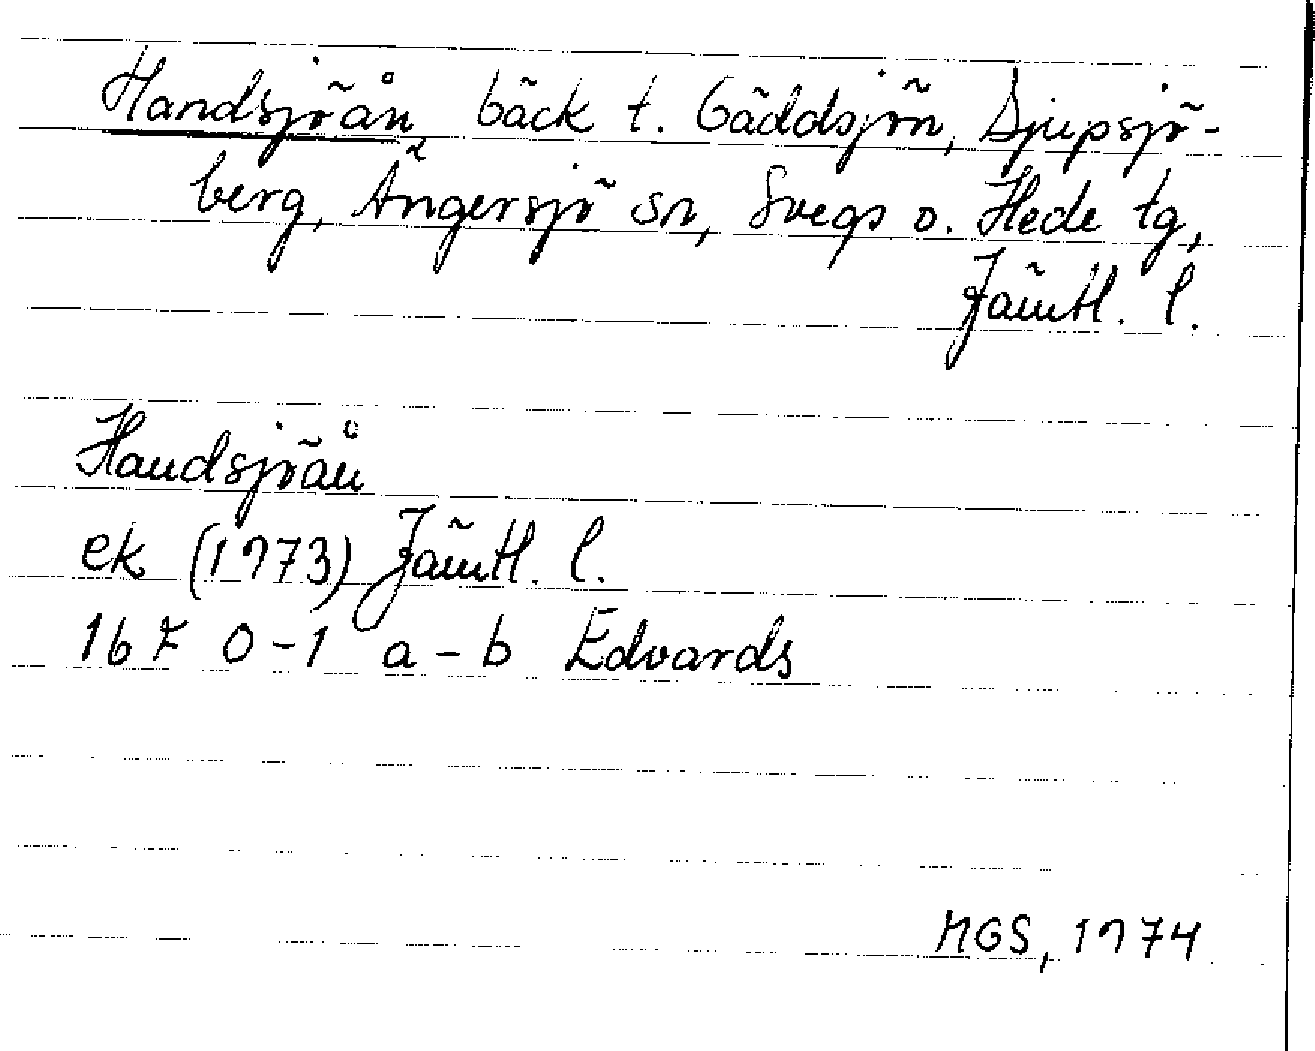 Handsjöån bäck t. Gäddsjön, Djupsjö-
berg, Ängersjö sn, Svegs o. Hede tg,
Jämtl. l.
Handsjöån
ek (1973) Jämtl. l.
16F 0-1 a-b Edvards
MGS, 1974